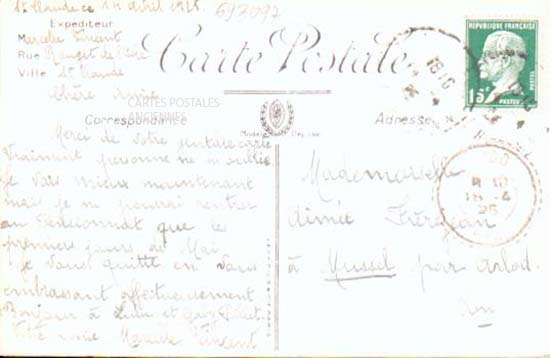 St Claude ce 14 avril 1925
693097
Expéditeur
Marcelle Vincent
Rue
Ville St Claude
Carte Postale
RÉPUBLIQUE FRANÇAISE
15c
POSTES
Chère Amie
CARTES POSTALES
ANCIENNES
Correspondance
Adresse
Merci de votre carte
Vraiment personne ne m'oublie
Je vais mieux maintenant
mais je ne pourrai rentrer
au Pensionnat que les
premiers jours de Mai
Je vous quitte en vous
embrassant affectueusement
Bonjour à
Votre amie Marcelle Vincent
Mademoiselle
Aimée
à Mussel par Arlod
Ain
18 10
18-4
25